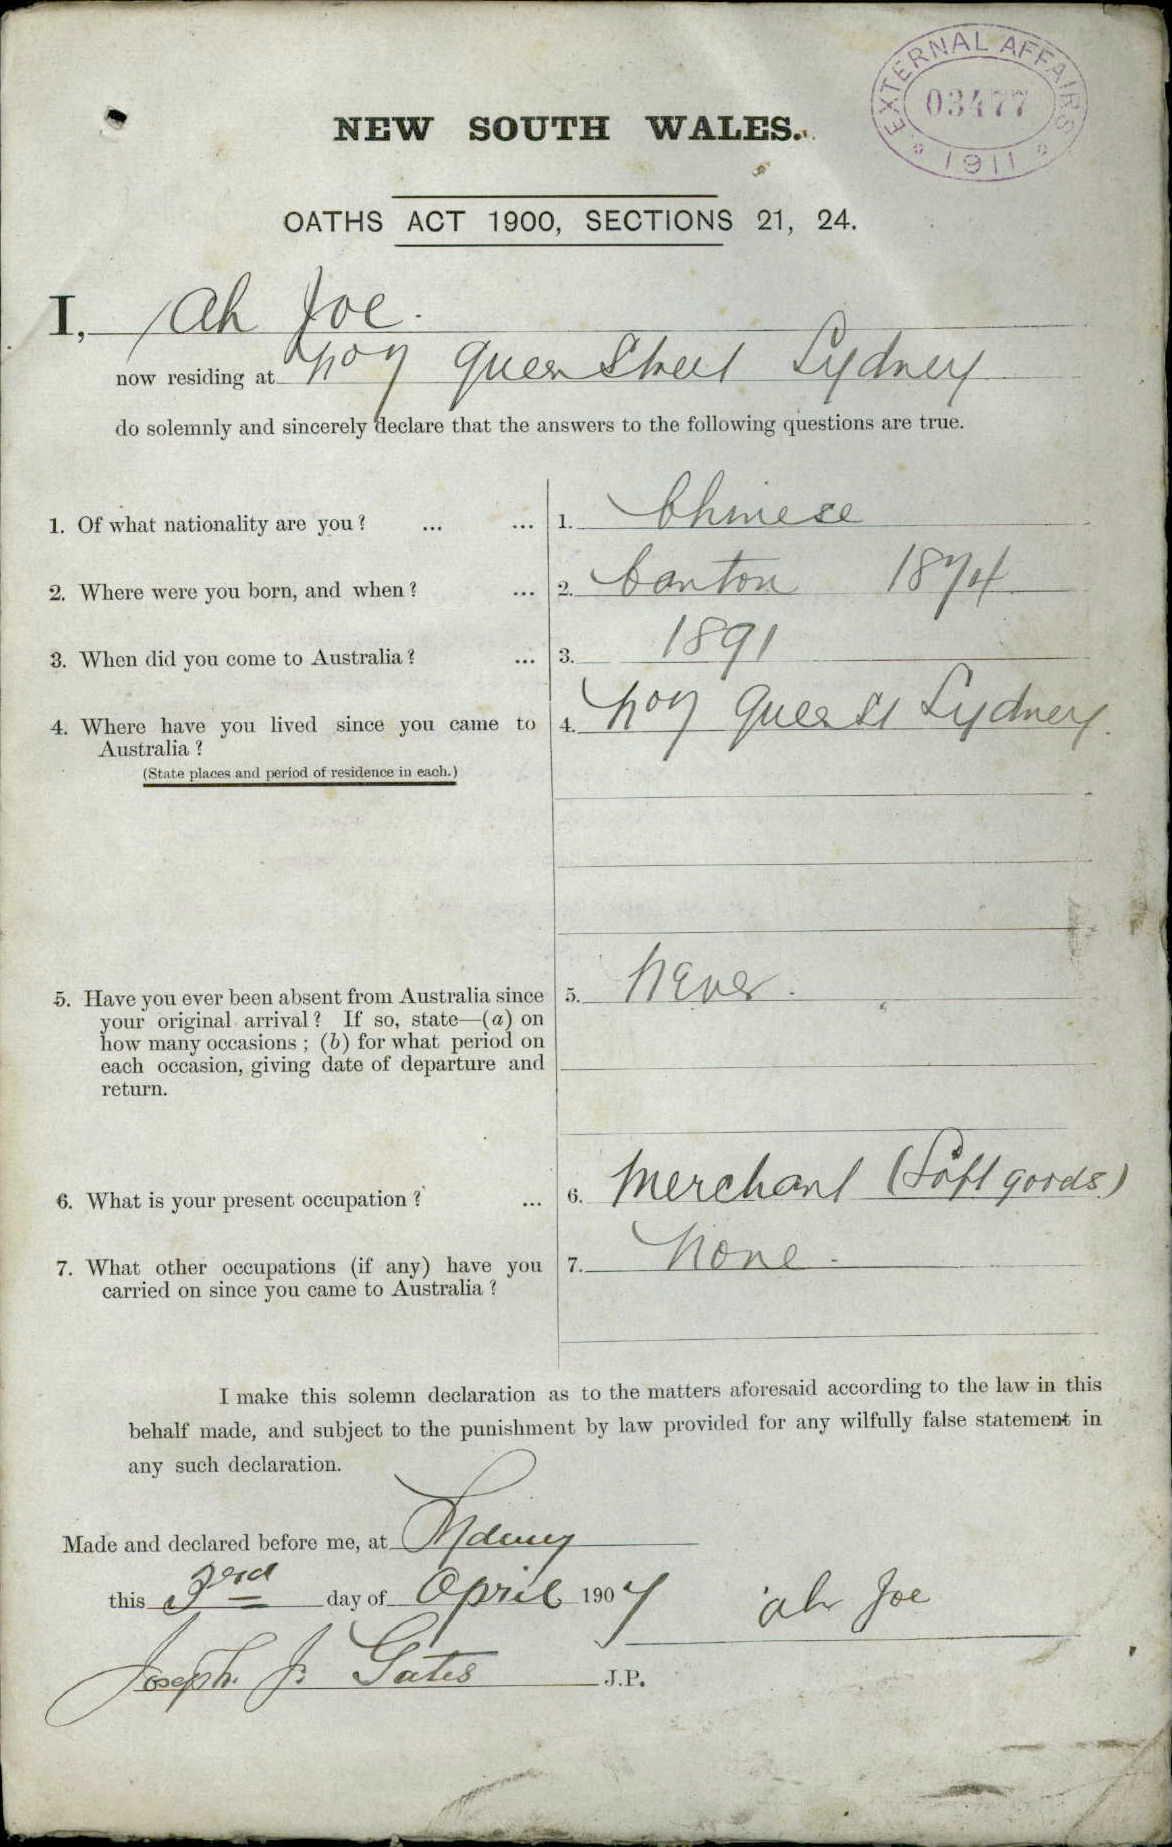 EXTERNAL AFFAIRS
03477
1911
NEW SOUTH WALES.
OATHS ACT 1900, SECTIONS 21, 24.
I, Ah Joe.
now residing at No 7 Queen Street Sydney
do solemnly and sincerely declare that the answers to the following questions are true.
1. Of what nationality are you? ... ... 1. Chinese
2. Where were you born, and when? ... 2. Canton 1874
3. When did you come to Australia? ... 3. 1891
4. Where have you lived since you came to 4. No 7 Queen St Sydney.
Australia?
(State places and period of residence in each.)
5. Have you ever been absent from Australia since 5. Never.
your original arrival? If so, state—(a) on
how many occasions; (b) for what period on
each occasion, giving date of departure and
return.
6. What is your present occupation? ... 6. Merchant (Soft goods.)
7. What other occupations (if any) have you 7. None.
carried on since you came to Australia?
I make this solemn declaration as to the matters aforesaid according to the law in this
behalf made, and subject to the punishment by law provided for any wilfully false statement in
any such declaration.
Made and declared before me, at Sydney
this 3rd day of April 1907 Ah Joe
Joseph. J. Gates J.P.